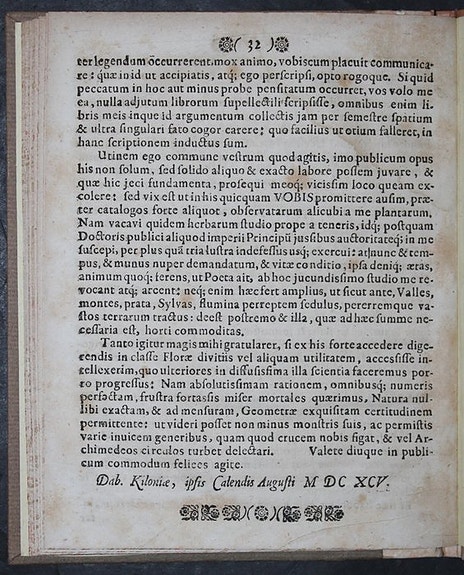 ( 32 )
ter legendum occurrerent, mox animo, vobiscum placuit communica-
re: quæ in id ut accipiatis, atq; ego perscripsi, opto rogoque. Si quid
peccatum in hoc aut minus probe pensitatum occurret, vos volo me
ea, nulla adjutum librorum supellectili scripsisse, omnibus enim li-
bris meis inque id argumentum collectis jam per semestre spatium
& ultra singulari fato cogor carere; quo facilius ut otium falleret, in
hanc scriptionem inductus sum.
Utinem ego commune vestrum quod agitis, imo publicum opus
his non solum, sed solido aliquo & exacto labore possem juvare, &
quæ hic jeci fundamenta, prosequi meoq; vicissim loco queam ex-
colere: sed vix est ut in his quicquam VOBIS promittere ausim, præ-
ter catalogos forte aliquot, observatarum alicubi a me plantarum.
Nam vacavi quidem herbarum studio prope a teneris, idq; postquam
Doctoris publici aliquod imperii Principũ jussibus auctoritateq; in me
suscepi, per plus quã tria lustra indefessus usq; exercui: at hunc & tem-
pus, & munus nuper demandatum, & vitæ conditio, ipsa deniq; ætas,
animum quoq; ferens, ut Poeta ait, ab hoc jucundissimo studio me re-
vocant atq; arcent: neq; enim hæc fert amplius, ut sicut ante, Valles,
montes, prata, Sylvas, flumina perreptem sedulus, pererremque va-
stos terrarum tractus: deest postremo & illa, quæ ad hæc summe ne-
cessaria est, horti commoditas.
Tanto igitur magis mihi gratularer, si ex his forte accedere dige-
rendis in classe Floræ divitiis vel aliquam utilitatem, accessisse in-
tellexerim, quo ulteriores in diffusissima illa scientia faceremus por-
ro progressus: Nam absolutissimam rationem, omnibusq; numeris
perfectam, frustra fortassis miser mortales quærimus, Natura nul-
libi exactam, & ad mensuram, Geometræ exquisitam certitudinem
permittente: ut videri posset non minus monstris suis, ac permistis
varie invicem generibus, quam quod crucem nobis figat, & vel Ar-
chimedeos circulos turbet delectari. Valete diuque in publi-
cum commodum felices agite.
Dab. Kiloniæ, ipsis Calendis Augusti M DC XCV.